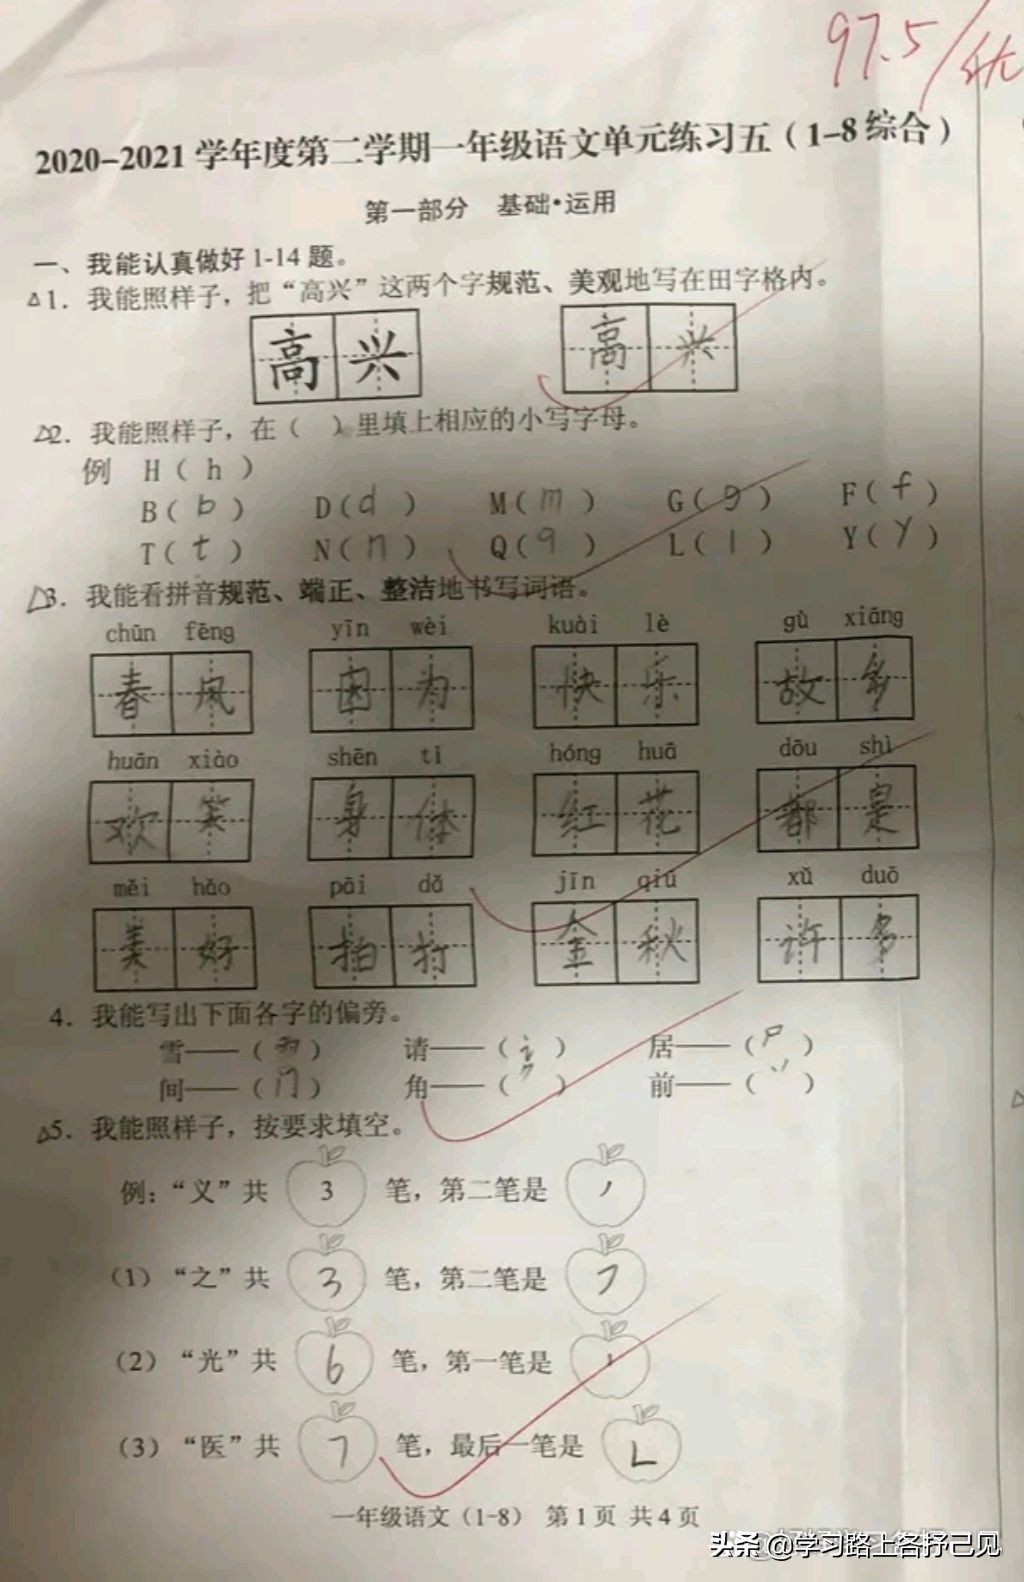 97.5/优
2020-2021学年度第二学期一年级语文单元练习五（1-8综合）
第一部分 基础·运用
一、我能认真做好1-14题。
△1. 我能照样子，把“高兴”这两个字规范、美观地写在田字格内。
高兴 高兴
△2. 我能照样子，在（ ）里填上相应的小写字母。
例 H（h）
B（b） D（d） M（m） G（g） F（f）
T（t） N（n） Q（q） L（l） Y（y）
△3. 我能看拼音规范、端正、整洁地书写词语。
chūn fēng yīn wèi kuài lè gù xiāng
春风 因为 快乐 故乡
huān xiào shēn tǐ hóng huā dōu shì
欢笑 身体 红花 都是
měi hǎo pāi dǎ jīn qiū xǔ duō
美好 拍打 金秋 许多
4. 我能写出下面各字的偏旁。
雪——（⻗） 请——（讠） 居——（尸）
间——（门） 角——（⺈） 前——（丷）
△5. 我能照样子，按要求填空。
例：“义”共 3 笔，第二笔是 ㇒
（1）“之”共 3 笔，第二笔是 ㇇
（2）“光”共 6 笔，第一笔是 丨
（3）“医”共 7 笔，最后一笔是 ㇗
一年级语文（1-8） 第1页 共4页
头条 @学习路上各抒己见